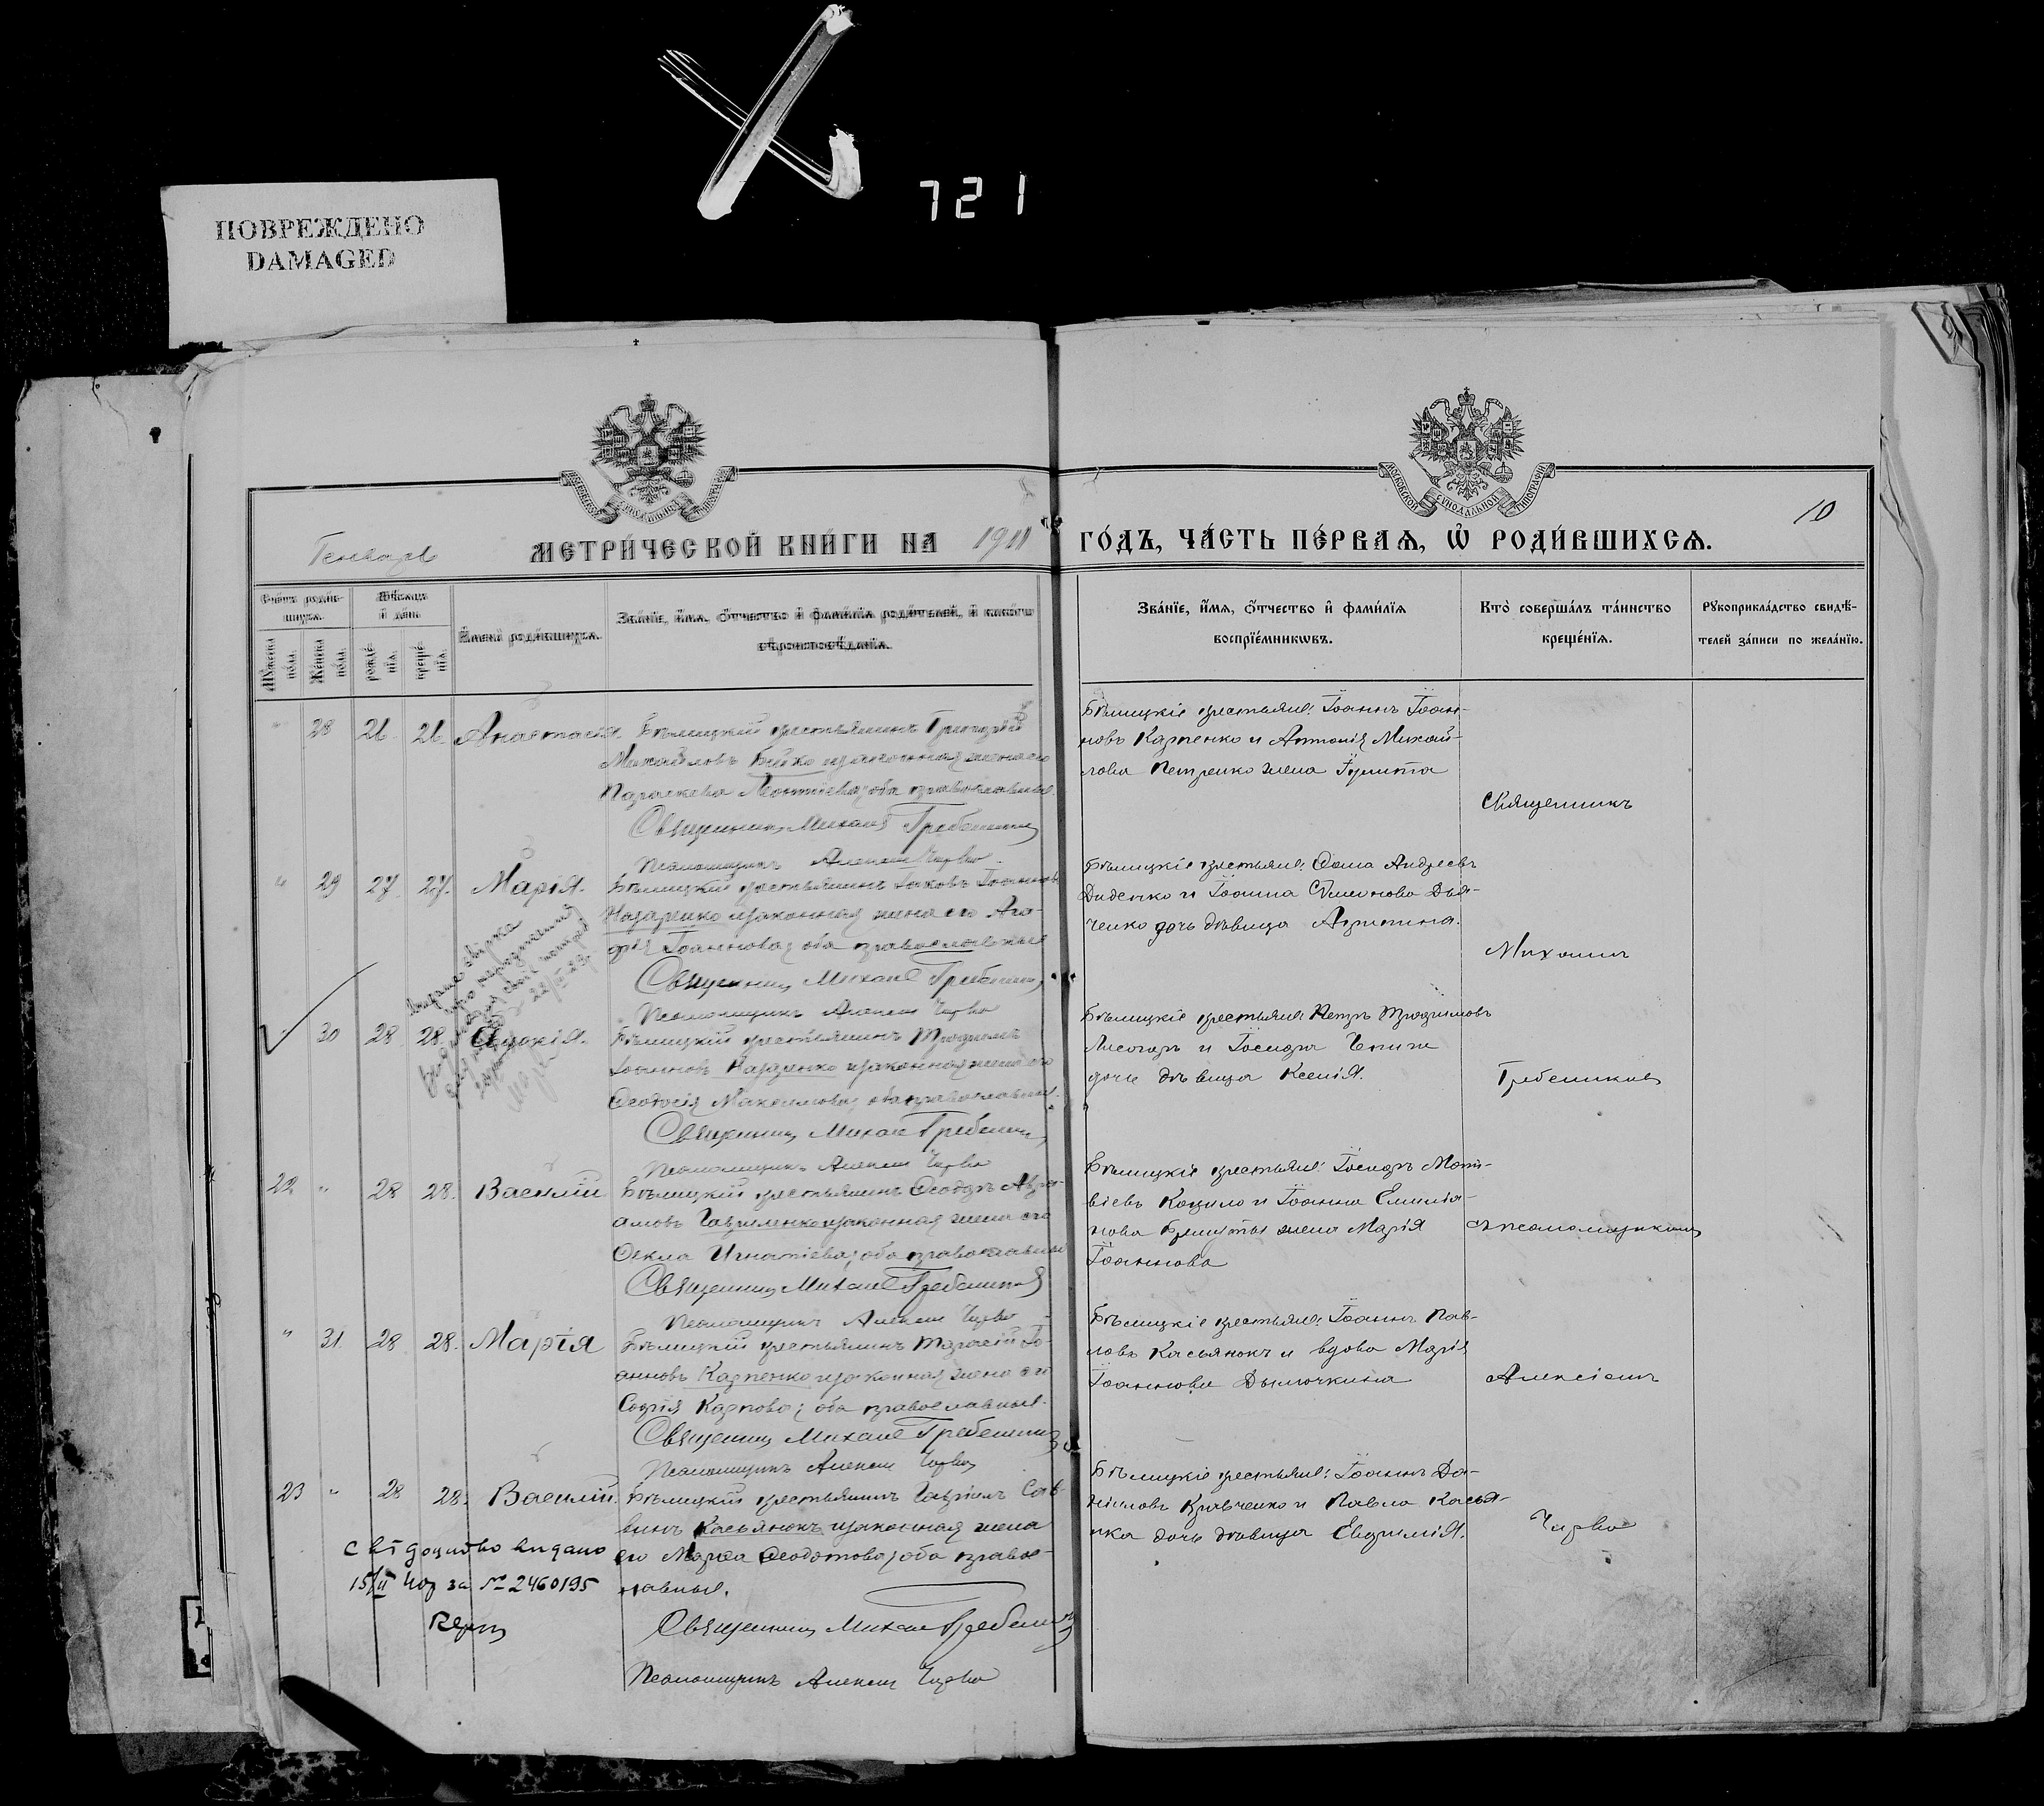 721
ПОВРЕЖДЕНО
DAMAGED
10
Генварь
МЕТРИ́ЧЕСКОЙ КНИ́ГИ НА 1911 ГО́ДЪ, ЧА́СТЬ ПЕ́РВАѦ, Ѡ҆ РОДИ́ВШИХСѦ.
Сче́тъ роди́в-
шихсѧ.
Мꙋ́жеска по́ла.
Же́нска по́ла.
Мѣ́сѧцъ
и҆ де́нь
рожде́-
нїѧ.
креще́-
нїѧ.
И҆мена̀ роди́вшихсѧ.
Зва́нїе, и҆́мѧ, ѻ҆́тчество и҆ фами́лїѧ роди́телей, и҆ како́гѡ
вѣроисповѣ́данїѧ.
Зва́нїе, и҆́мѧ, ѻ҆́тчество и҆ фами́лїѧ
воспрїе́мникѡвъ.
Кто̀ соверша́лъ та́инство
креще́нїѧ.
Рꙋкоприкла́дство свидѣ́-
телей за́писи по жела́нїю.
" 28 26. 26. Анастасія.
Бѣлицкій крестьянинъ Григорій
Михайловъ Бойко и законная жена его
Параскева Леонтіева; оба православные.
Священникъ Михаил Гребенников
Псаломщикъ Алексей Чирва
Бѣлицкіе крестьяне: Іоаннъ Іоан-
новъ Карпенко и Антонія Михай-
лова Петренко жена Іулитта
" 29 27. 27. Марія.
Бѣлицкій крестьянинъ Іаковъ Іоанновъ
Назаренко и законная жена его Ага-
фія Іоаннова; оба православные
Священникъ Михаил Гребенников
Псаломщикъ Алексей Чирва
Бѣлицкіе крестьяне: Ѳома Андреевъ
Диденко и Іоанна Симонова Дья-
ченко дочь дѣвица Агрипина.
" 30 28 28. Евдокія.
Бѣлицкій крестьянинъ Трофимъ
Іоанновъ Назаренко и законная жена его
Ѳеодосія Максимова; оба православные.
Священникъ Михаил Гребенников
Псаломщикъ Алексей Чирва
Бѣлицкіе крестьяне Петръ Трофимовъ
Лисогоръ и Іосифа Чепиги
дочь дѣвица Ксенія.
22 " 28 28. Василій
Бѣлицкій крестьянинъ Ѳеодоръ Авра-
амовъ Гавриленко и законная жена его
Ѳекла Игнатіева; оба православные
Священникъ Михаил Гребенников
Псаломщикъ Алексей Чирва
Бѣлицкіе крестьяне: Іосифъ Мат-
віевъ Кацило и Іоанна Емилія-
нова жена Марія
Іоаннова
" 31. 28 28. Марія
Бѣлицкій крестьянинъ Тарасій Іо-
анновъ Карпенко и законная жена его
Софія Карпова; оба православные.
Священникъ Михаил Гребенников
Псаломщикъ Алексей Чирва
Бѣлицкіе крестьяне: Іоаннъ Пав-
ловъ Касьянокъ и вдова Марія
Іоаннова Дымочкина
23 " 28 28. Василій.
Бѣлицкій крестьянинъ Гавріилъ Сав-
винъ Касьянокъ и законная жена
его Марѳа Ѳеодотова; оба правос-
лавные.
Священникъ Михаил Гребенников
Псаломщикъ Алексей Чирва
Бѣлицкіе крестьяне: Іоаннъ Да-
ніиловъ Кравченко и Павла Касья-
нка дочь дѣвица Евфимія.
Священникъ
Михаилъ
Гребениковъ
съ псаломщикомъ
Алексіемъ
Чирвою
свідоцтво видано
15/II 40р за № 2460195